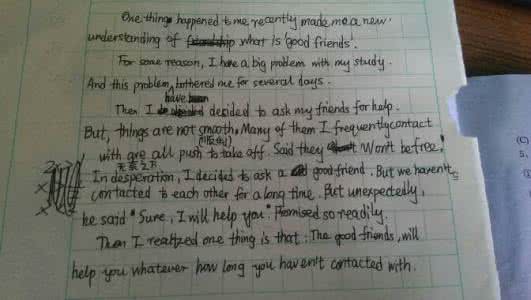 One things happened to me recently made me a new
understanding of friendship what is 'good friends'.
For some reason, I have a big problem with my study.
And this problem bothered me for several days.
have been
Then I decided to ask my friends for help.
But, things are not smooth. Many of them I frequently contact
(顺利)
with are all push to take off. Said they Won't be free.
无奈之下
In desperation, I decided to ask a good friend. But we haven't
contacted to each other for a long time. But unexpectedly,
he said "Sure, I will help you". Promised so readily.
Then I realized one thing is that: The good friends, will
help you whatever how long you haven't contacted with.
(C)
5.